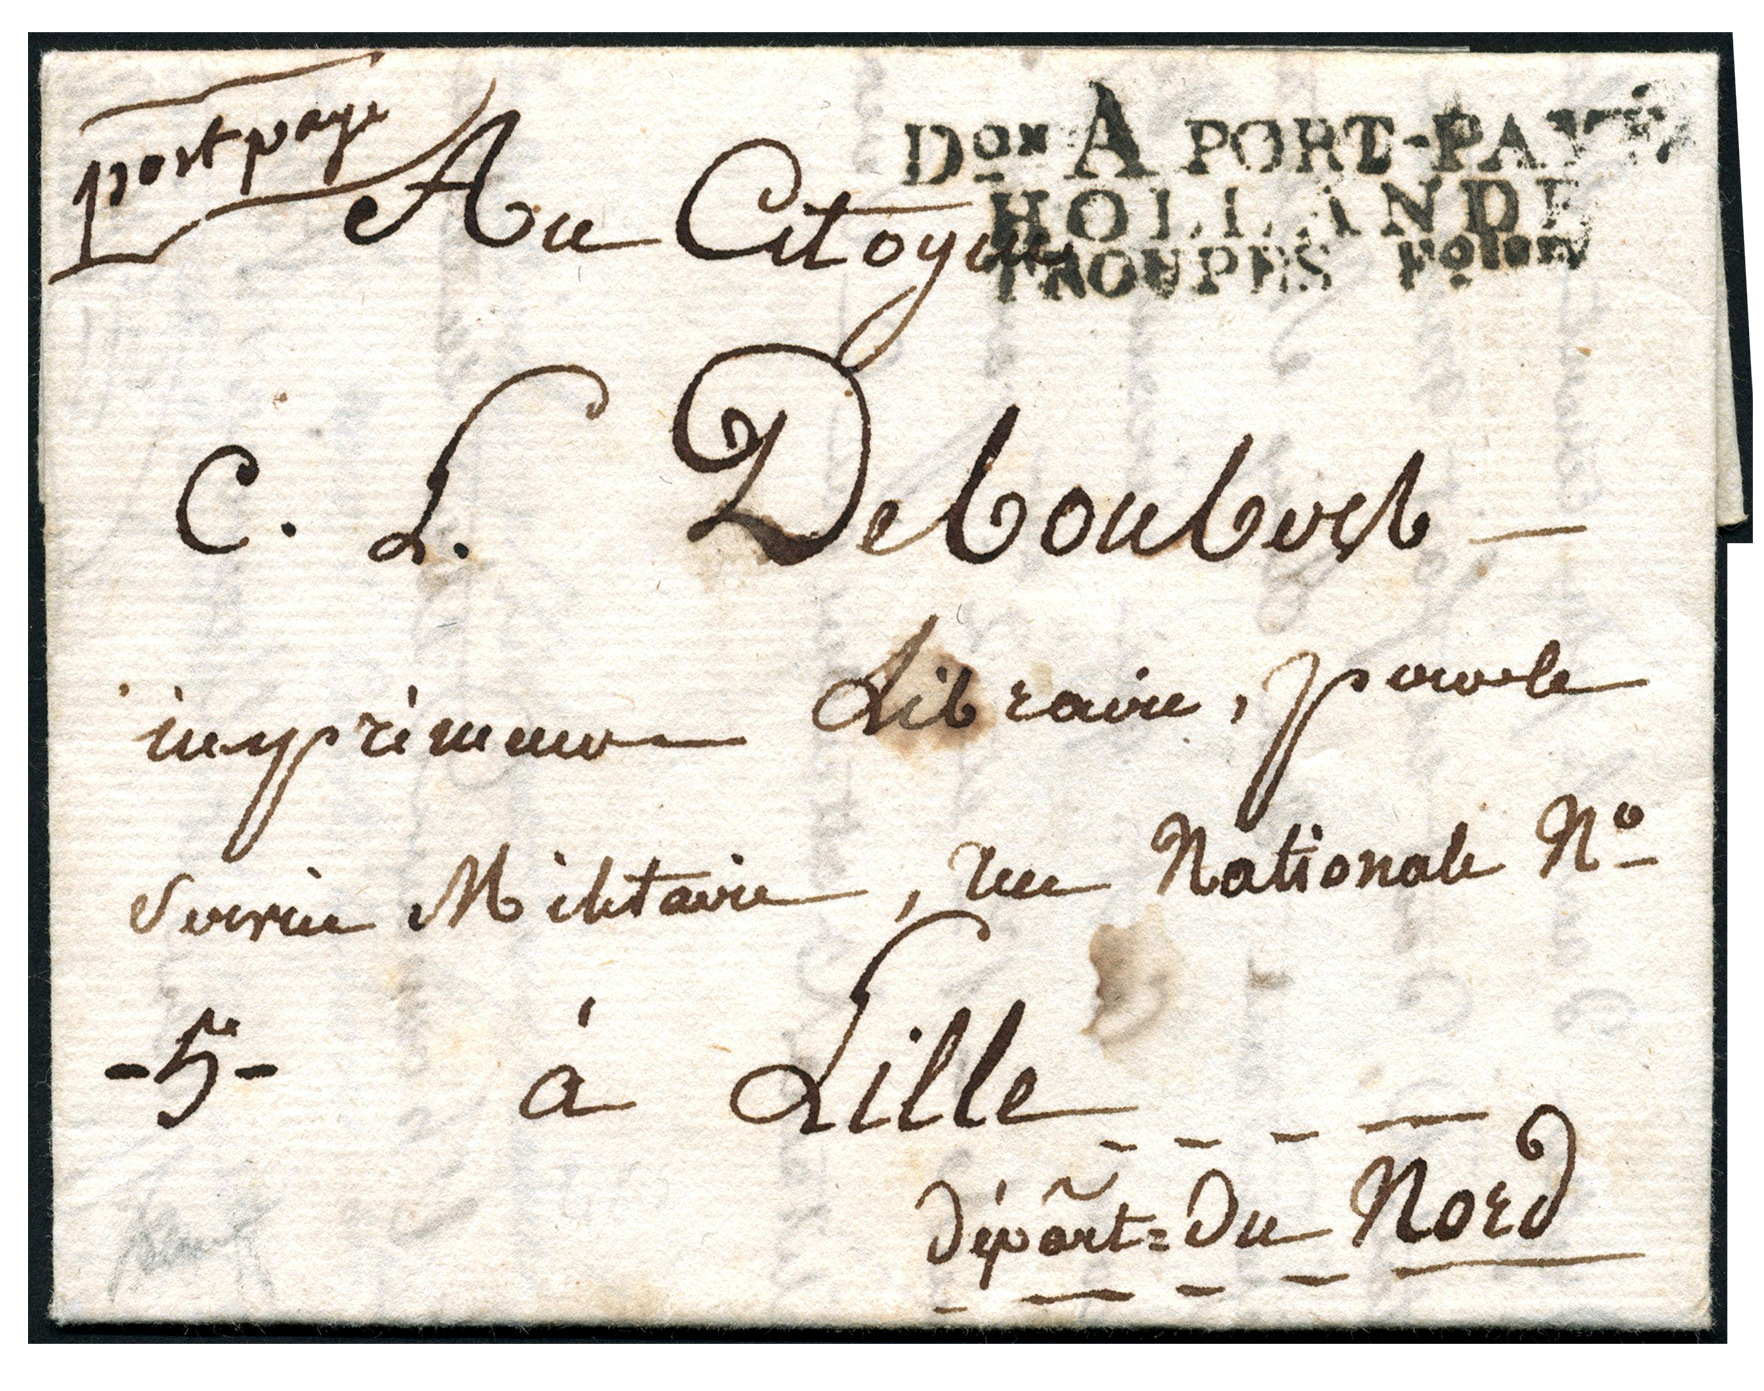 port paye
Don A PORT-PAYÉ
HOLLANDE
TROUPES
Au Citoyen
C. L. Deboubers
imprimeur Libraire, pour le
Service Militaire, rue Nationale No
-5-
à Lille
départ= du Nord